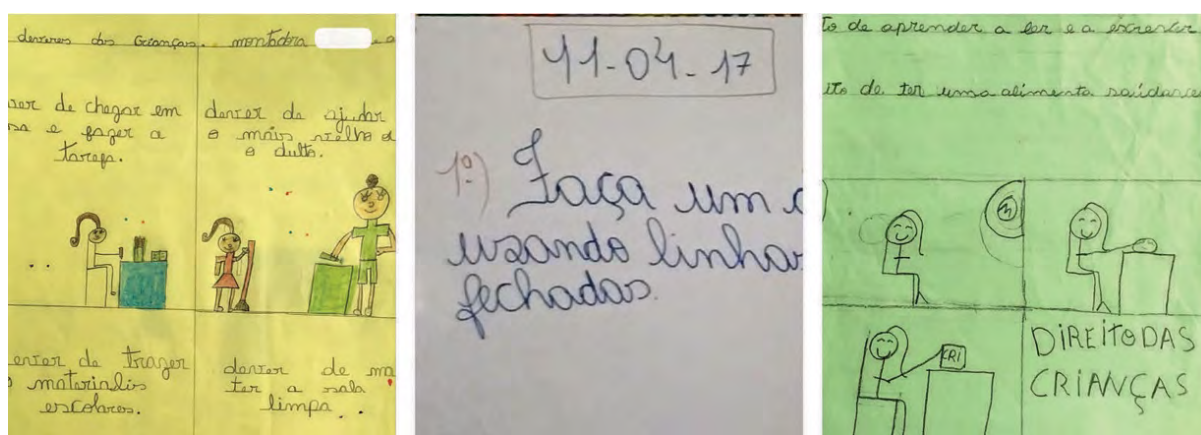 deveres das crianças. montadora
ver de chegar em
sa e fazer a
tarefa.
dever de ajudar
o máis velho e
o dulto.
ever de trazer
materialis
escolares.
dever de ma
ter a sala
limpa.
11-04-17
1º) Faça um
usando linhas
fechadas.
to de aprender a ler e a escrever
ito de ter uma alimenta saúdavel
ERI
DIREITO DAS
CRIANÇAS